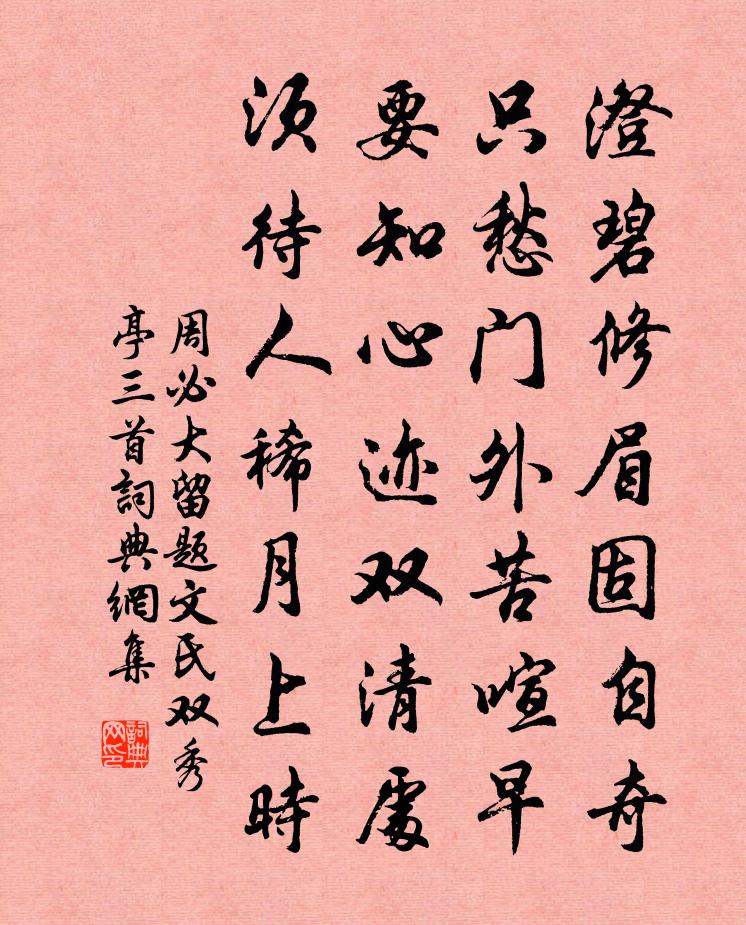 澄碧修眉固自奇
只愁门外苦喧早
要知心迹双清處
须待人稀月上時
周必大留题文氏双秀
亭三首詞典網集
詞典网印